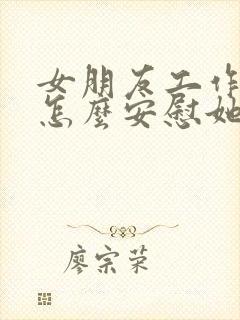 女朋友工作
怎麼安慰她
廖宗荣